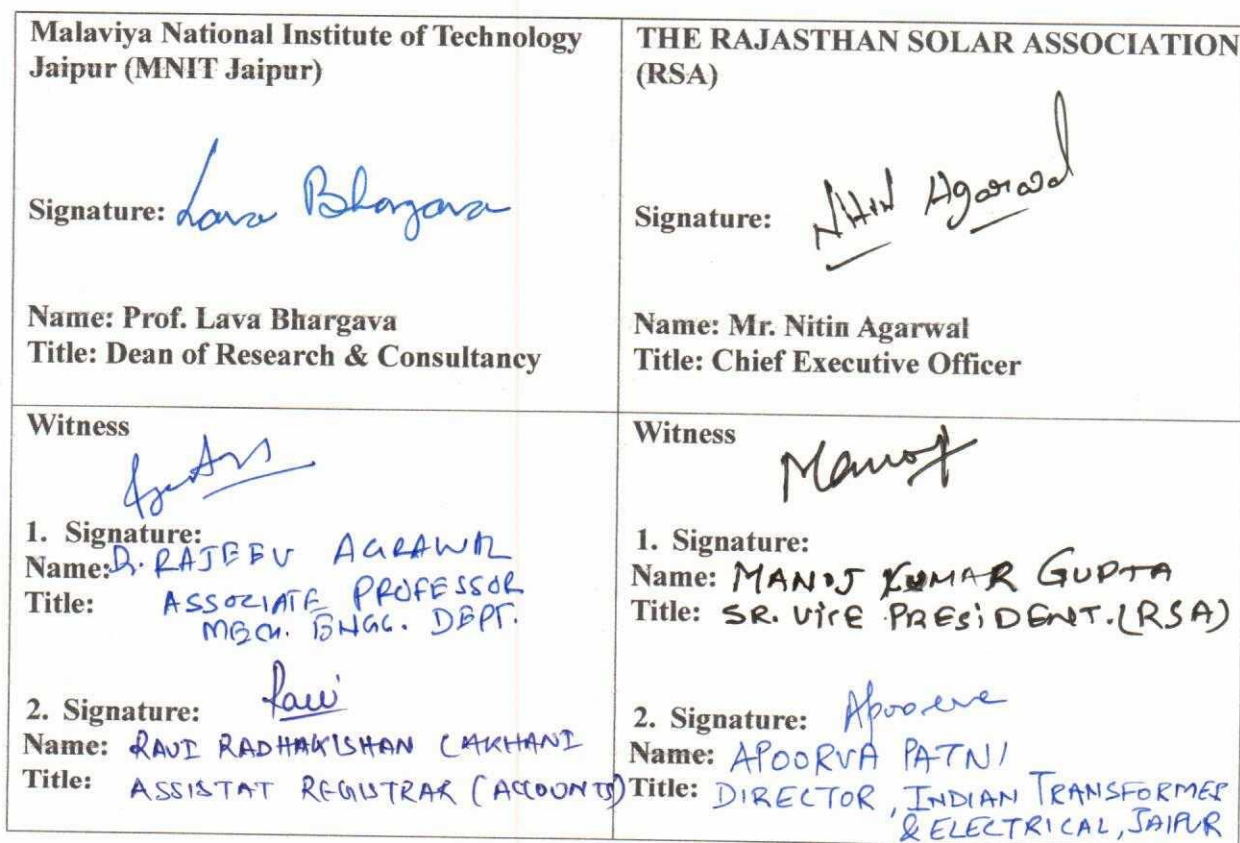 Malaviya National Institute of Technology
Jaipur (MNIT Jaipur)
Signature: Lava Bhargava
Name: Prof. Lava Bhargava
Title: Dean of Research & Consultancy
THE RAJASTHAN SOLAR ASSOCIATION
(RSA)
Signature: Nitin Agarwal
Name: Mr. Nitin Agarwal
Title: Chief Executive Officer
Witness
1. Signature:
Name: Dr. RAJEEV AGRAWAL
Title: ASSOCIATE PROFESSOR
MECH. ENGG. DEPT.
2. Signature: Ravi
Name: RAVI RADHAKISHAN LAKHANI
Title: ASSISTAT REGISTRAR (ACCOUNTS)
Witness
Manoj
1. Signature:
Name: MANOJ KUMAR GUPTA
Title: SR. VicE PRESiDENT. (RSA)
2. Signature: Apoorva
Name: APOORVA PATNI
Title: DIRECTOR, INDIAN TRANSFORMER
& ELECTRICAL, JAIPUR